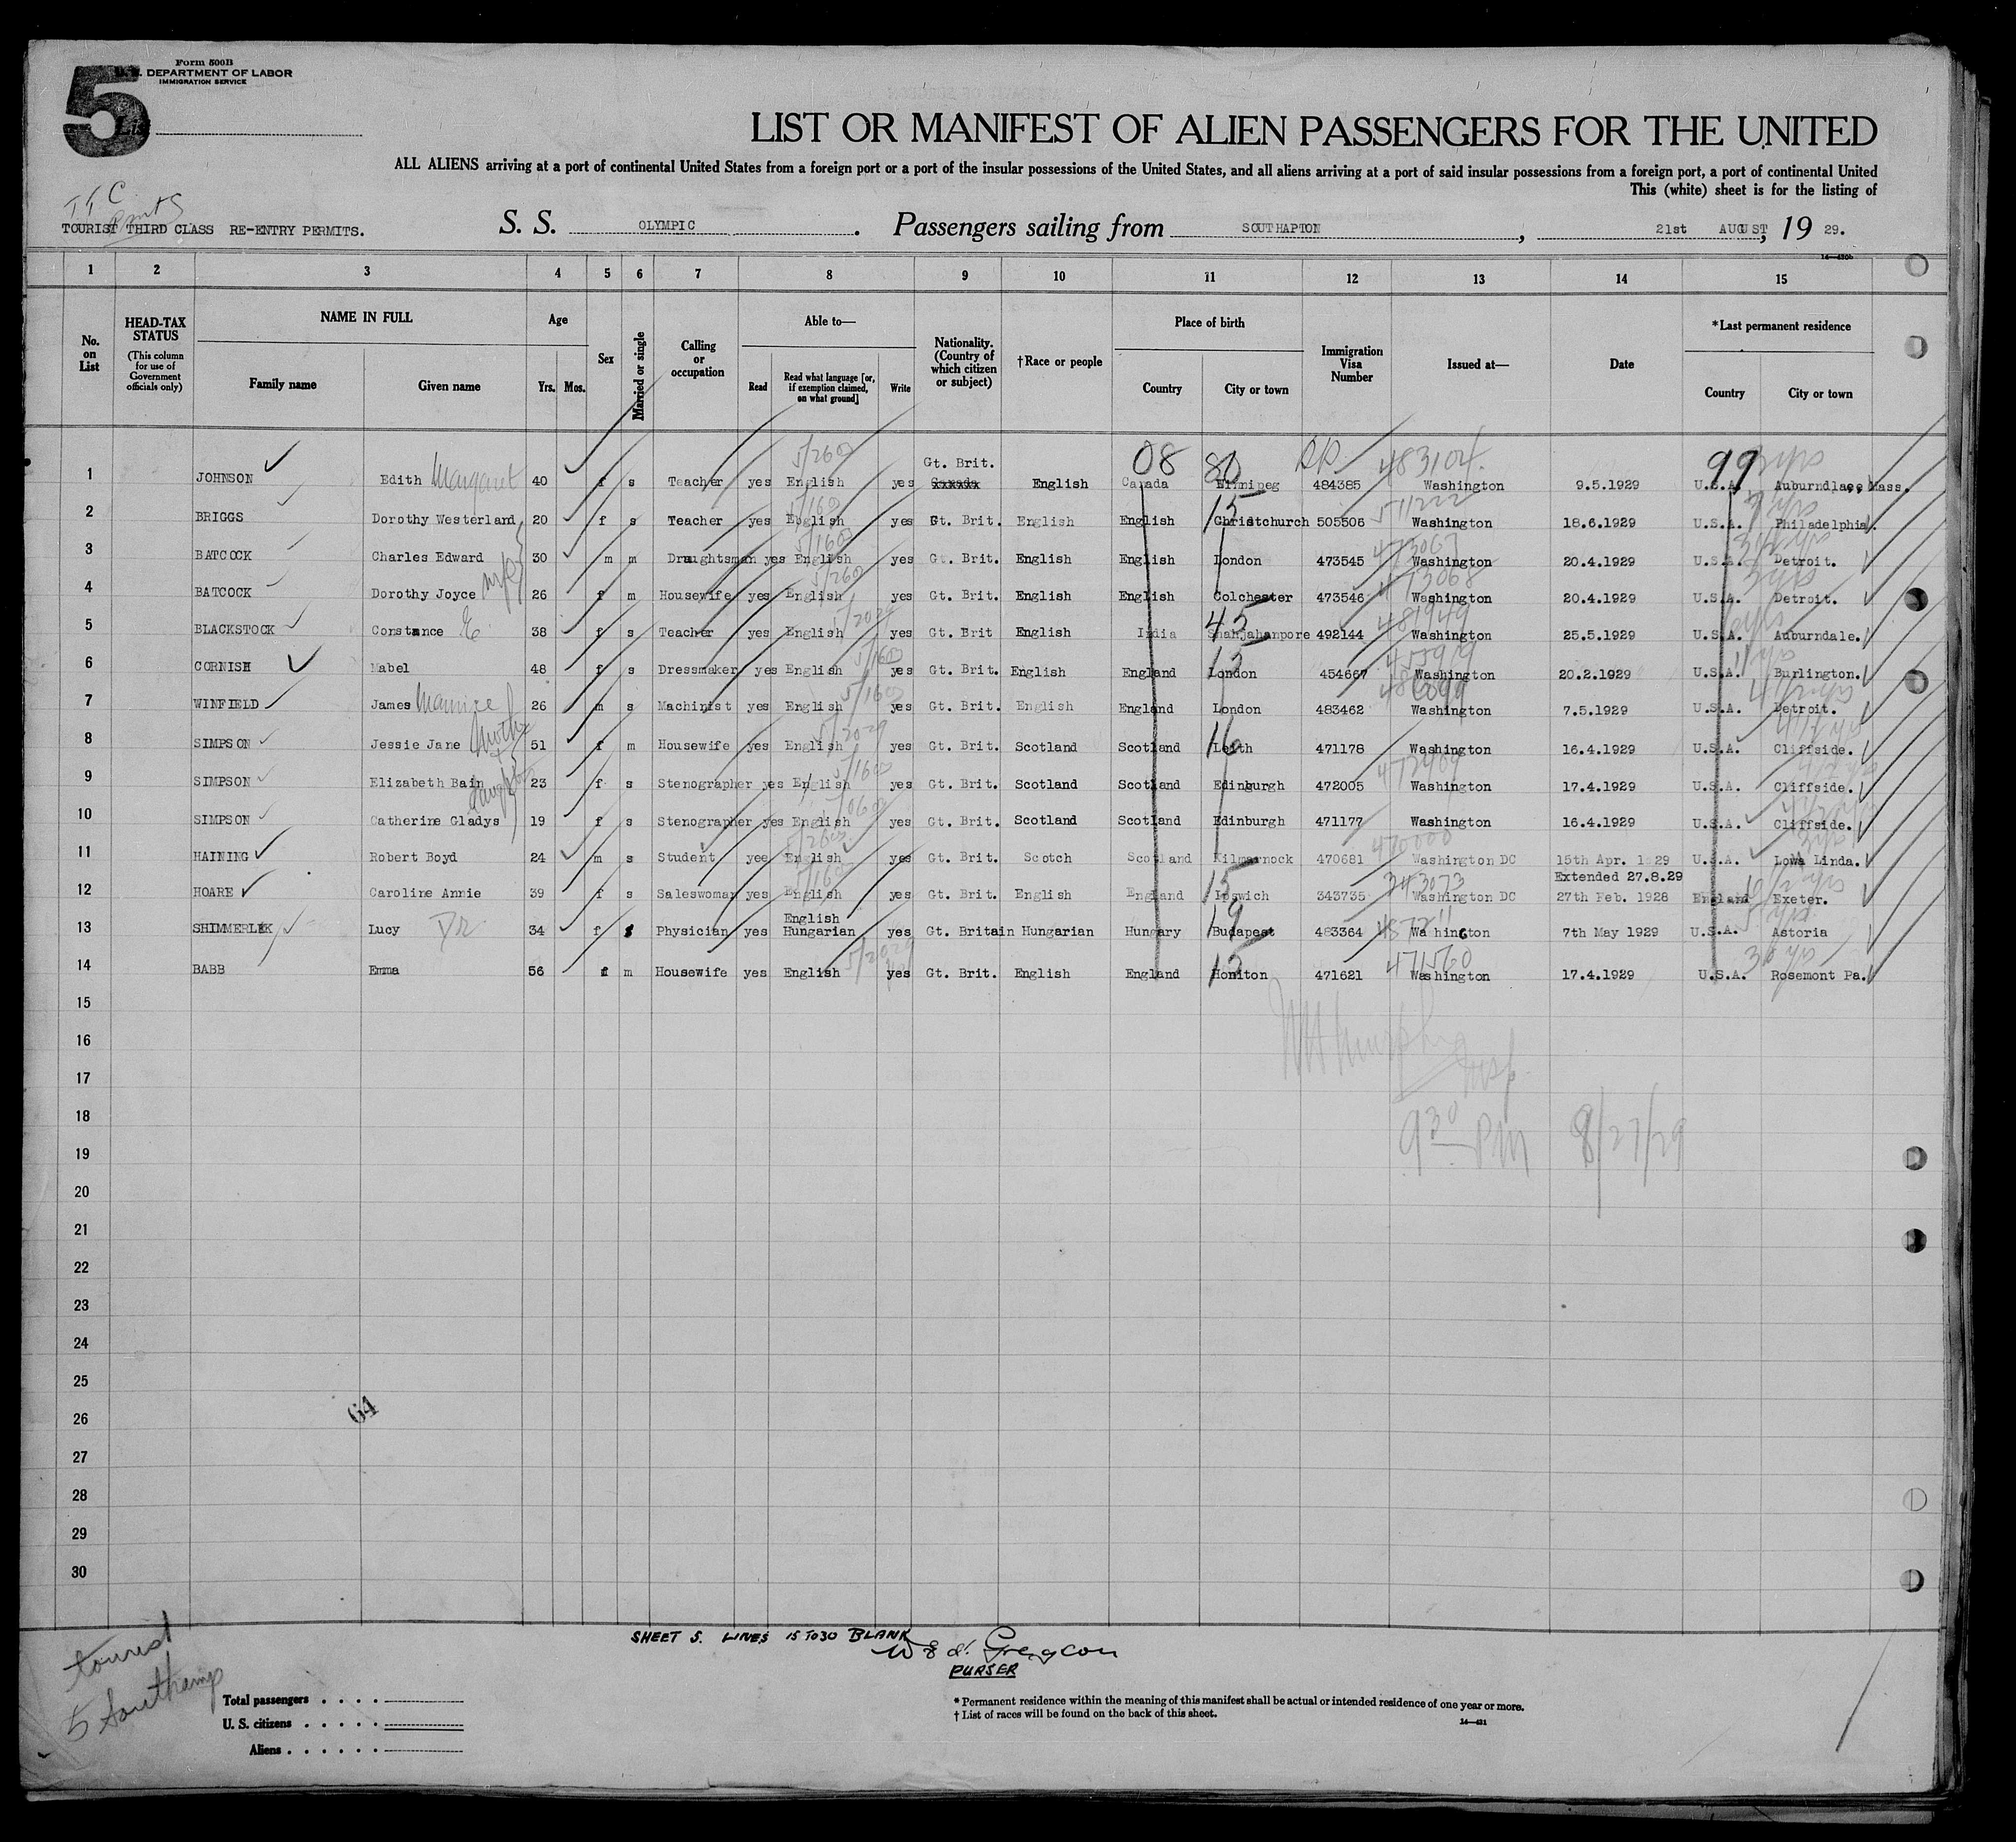 Form 500B
U. S. DEPARTMENT OF LABOR
IMMIGRATION SERVICE
5
List
LIST OR MANIFEST OF ALIEN PASSENGERS FOR THE UNITED
ALL ALIENS arriving at a port of continental United States from a foreign port or a port of the insular possessions of the United States, and all aliens arriving at a port of said insular possessions from a foreign port, a port of continental United
This (white) sheet is for the listing of
TOURIST THIRD CLASS RE-ENTRY PERMITS. S. S. OLYMPIC . Passengers sailing from SOUTHAPTON , 21st AUGUST, 19 29.
1 2 3 4 5 6 7 8 9 10 11 12 13 14 15
No. on List
HEAD-TAX STATUS (This column for use of Government officials only)
NAME IN FULL Family name Given name
Age Yrs. Mos.
Sex
Married or single
Calling or occupation
Able to— Read Read what language [or, if exemption claimed, on what ground] Write
Nationality. (Country of which citizen or subject)
†Race or people
Place of birth Country City or town
Immigration Visa Number
Issued at—
Date
*Last permanent residence Country City or town
08 80 483104 99
1 JOHNSON Edith Margaret 40 f s Teacher yes English yes Gt. Brit. xxxxxx English Canada Winnipeg 484385 Washington 9.5.1929 U.S.A. Auburndlae, Mass.
2 BRIGGS Dorothy Westerland 20 f s Teacher yes English yes Gt. Brit. English English 15 Christchurch 505506 511222 Washington 18.6.1929 U.S.A. Philadelphia.
3 BATCOCK Charles Edward 30 m m Draughtsman yes English yes Gt. Brit. English English London 473545 473067 Washington 20.4.1929 U.S.A. Detroit.
4 BATCOCK Dorothy Joyce wife 26 f m Housewife yes English yes Gt. Brit. English English Colchester 473546 473068 Washington 20.4.1929 U.S.A. Detroit.
5 BLACKSTOCK Constance E 38 f s Teacher yes English yes Gt. Brit English India 45 Shahjahanpore 492144 481949 Washington 25.5.1929 U.S.A. Auburndale.
6 CORNISH Mabel 48 f s Dressmaker yes English yes Gt. Brit. English England 15 London 454667 Washington 20.2.1929 U.S.A. Burlington.
7 WINFIELD James Maurice 26 m s Machinist yes English yes Gt. Brit. English England London 483462 Washington 7.5.1929 U.S.A. Detroit.
8 SIMPSON Jessie Jane Mother 51 f m Housewife yes English yes Gt. Brit. Scotland Scotland 16 Leith 471178 Washington 16.4.1929 U.S.A. Cliffside.
9 SIMPSON Elizabeth Bain 23 f s Stenographer yes English yes Gt. Brit. Scotland Scotland Edinburgh 472005 Washington 17.4.1929 U.S.A. Cliffside.
10 SIMPSON Catherine Gladys 19 f s Stenographer yes English yes Gt. Brit. Scotland Scotland Edinburgh 471177 Washington 16.4.1929 U.S.A. Cliffside.
11 HAINING Robert Boyd 24 m s Student yee English yes Gt. Brit. Scotch Scotland Kilmarnock 470681 470000 Washington DC 15th Apr. 1929 U.S.A. Lowa Linda.
Extended 27.8.29
12 HOARE Caroline Annie 39 f s Saleswoman yes English yes Gt. Brit. English England 15 Ipswich 343735 343073 Washington DC 27th Feb. 1928 England Exeter.
13 SHIMMERLIK Lucy Dr 34 f s Physician yes English Hungarian yes Gt. Britain Hungarian Hungary 19 Budapest 483364 487211 Washington 7th May 1929 U.S.A. Astoria
14 BABB Emma 56 f m Housewife yes English yes Gt. Brit. English England 15 Honiton 471621 471560 Washington 17.4.1929 U.S.A. Rosemont Pa.
15
16
17
18
9 30 PM 8/27/29
19
20
21
22
23
24
25
26
64
27
28
29
30
SHEET 5. LINES 15 TO 30 BLANK
PURSER
tourist
5 Southamp
Total passengers . . . .
U. S. citizens . . . . .
Aliens . . . . . .
* Permanent residence within the meaning of this manifest shall be actual or intended residence of one year or more.
† List of races will be found on the back of this sheet.